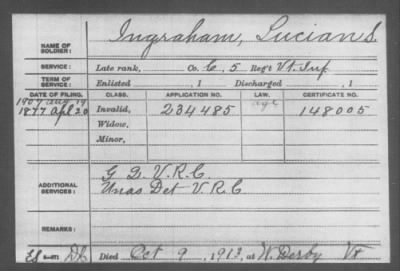 NAME OF SOLDIER: Ingraham, Lucian S.
SERVICE: Late rank, Co. C, 5 Reg't Vt. Inf
TERM OF SERVICE: Enlisted , 1 Discharged , 1
DATE OF FILING. CLASS. APPLICATION NO. LAW. CERTIFICATE NO.
1907 Aug 19 age
1877 Apl 20 Invalid, 234485 148005
Widow,
Minor,
ADDITIONAL SERVICES: G D. V.R.C.
Unas Det V.R.C
REMARKS:
Died Oct 9, 1913, at W. Derby Vt